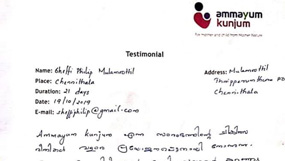 ammayum
kunjum
For mother and child from mother nature
Testimonial
Name: Cheffi Philip Mulamoottil
Address: Mulamoottil
Place: Chennithala
Thripperumthura PO
Duration: 21 days
Chennithala
Date: 19/10/2019
E-mail: cheffiphilip@gmail.com
Ammayum kunjum എന്ന സ്ഥാപനത്തിന്റെ